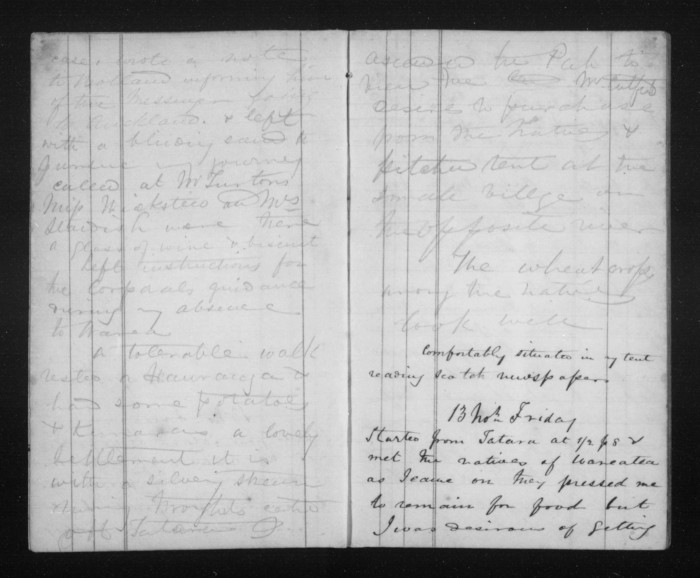 case & wrote a note
to Holland informing him
of the Messenger going
to Auckland. & left
with a blinding sand to
pursue my journey
called at Mr Turtons
Miss & Mrs
Standish were here
a glass of wine & biscuit
left instructions for
the Corporals guidance
during my absence
to
A tolerable walk
rested a &
had some potatoes
& a lovely
Settlement it is
with a silvery stream
running
off
ascended the Pah to
view the
desire to purchase
from the natives &
pitched tent at the
small village on
the opposite river
The wheat crops
among the natives
look well
Comfortably situated in my tent
reading Scotch newspapers
13 Nov. Friday
Started from Tatara at 1/2 p 8 &
met the natives of Wareatea
as I came on they pressed me
to remain for food but
I was desirous of getting